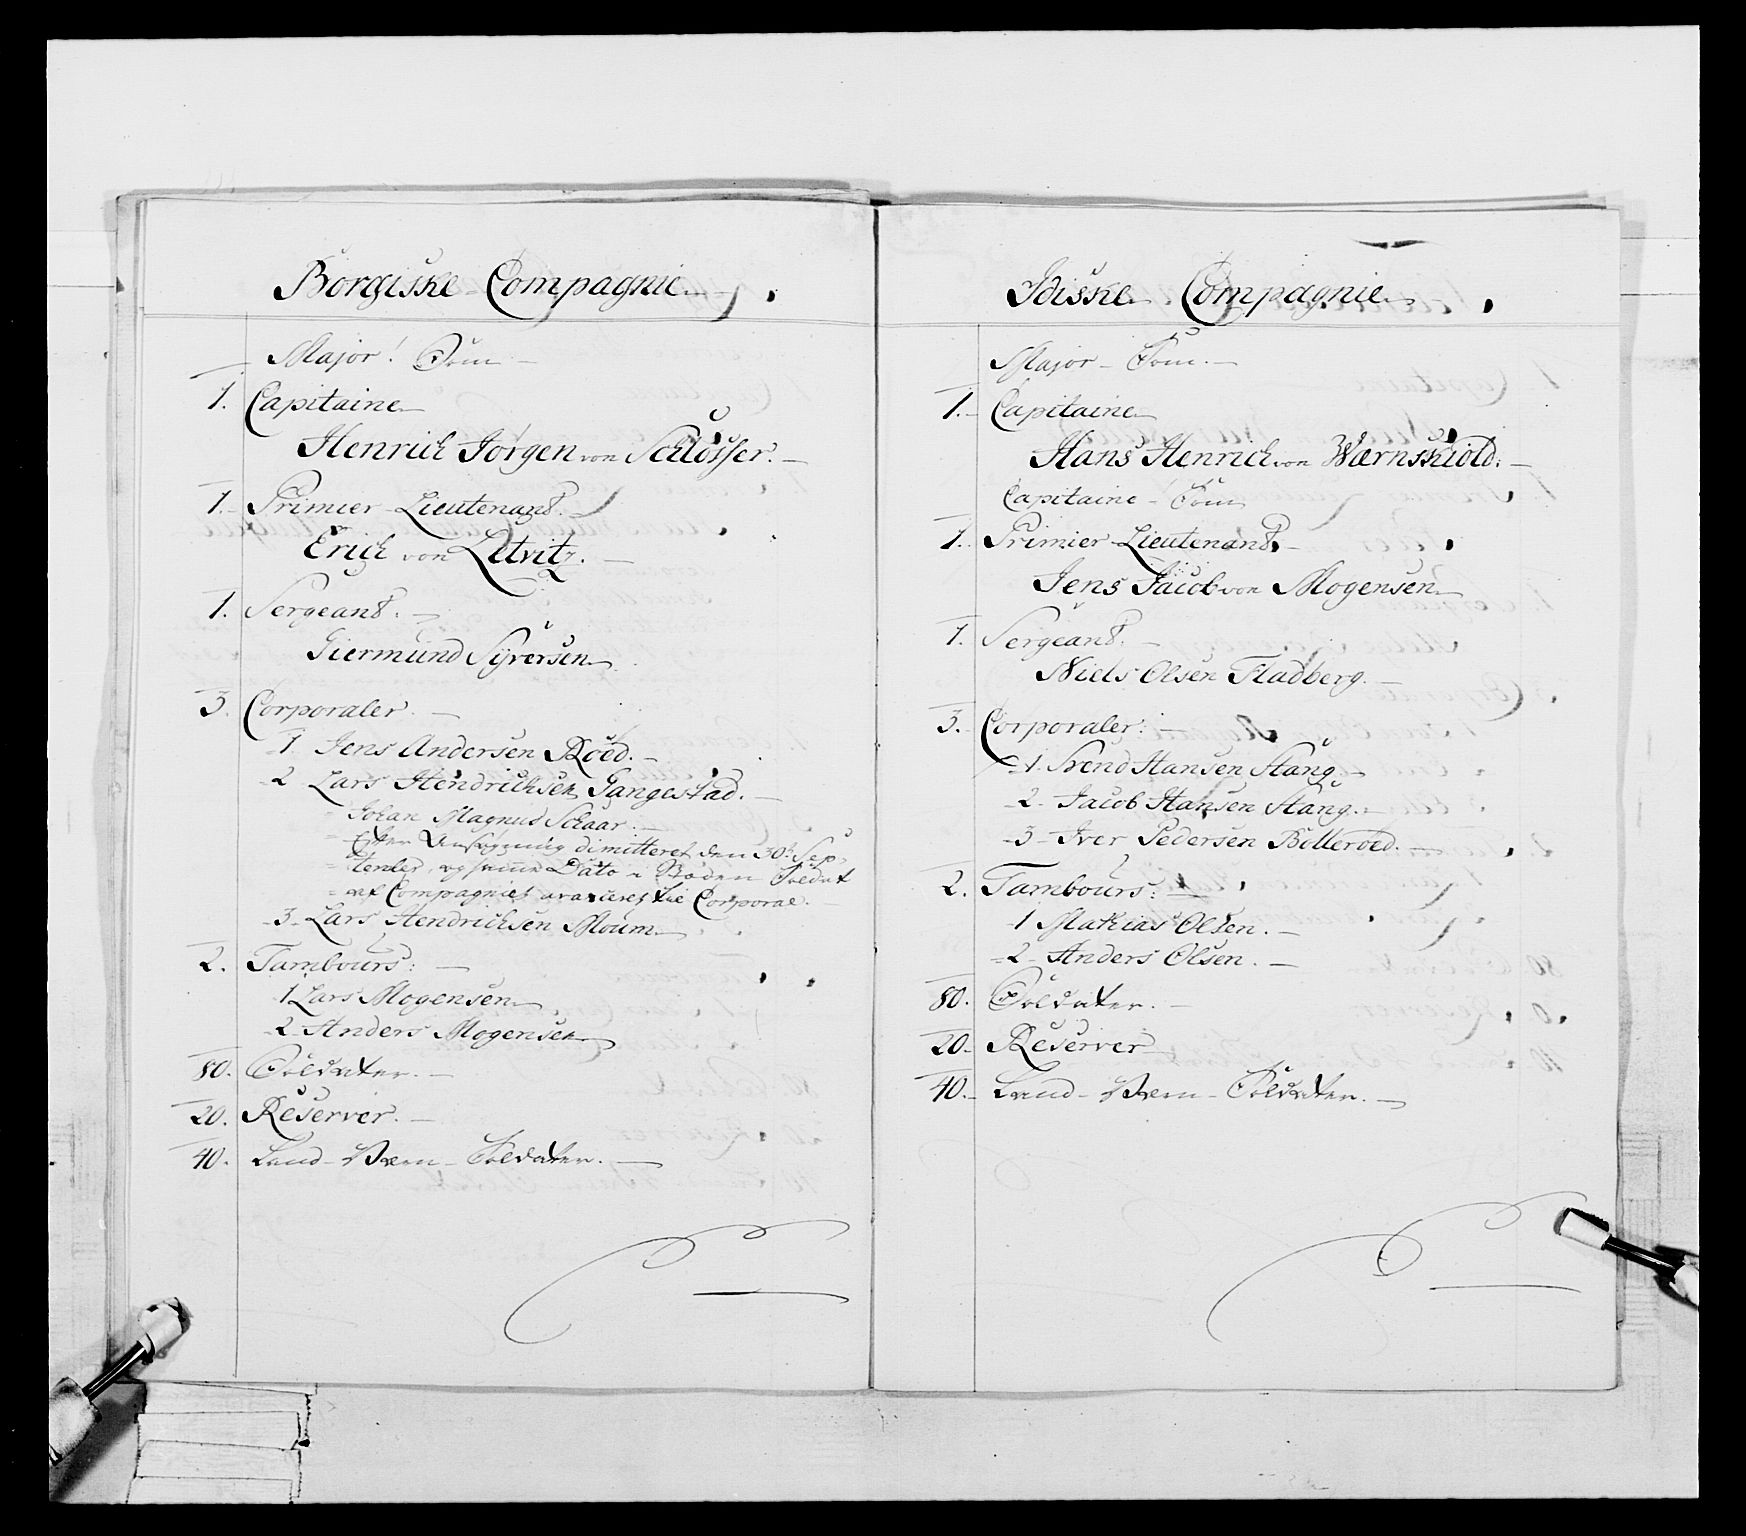 Borgiske Compagnie.
Major! Tom
1. Capitaine
Henrich Jørgen von Schlösser.
1. Primier-Lieutenant.
Erich von Letvitz.
1. Sergeant.
Giermund Syversen
3. Corporaler.
1. Jens Andersen Roed.
2 Lars Hendrichsen Gangestad.
Johan Magnus Schaar.
Efter Ansøgning dimitteret den 30te Sep-
tember, og samme Dato Soldat
af Compagniet avanceret til Corporal.
3. Lars Hendrichsen Moum
2. Tambours:
1 Lars Mogensen
2 Anders Mogensen
80. Soldater.
20. Reserver.
40. Land-Værn-Soldater.
Idiske Compagnie
Major Tom.
1. Capitaine
Hans Henrich von Wærnskiold.
Capitaine Tom
1. Primier Lieutenant
Jens Jacob von Mogensen
1. Sergeant.
Niels Olsen Fladberg.
3. Corporaler:
1. Svend Hansen Stang
2. Jacob Hansen Stang.
3 Iver Pedersen Bolleroed.
2. Tambours:
1 Mathias Olsen.
2 Anders Olsen.
80. Soldater.
20. Reserver
40. Land-Værn-Soldater.